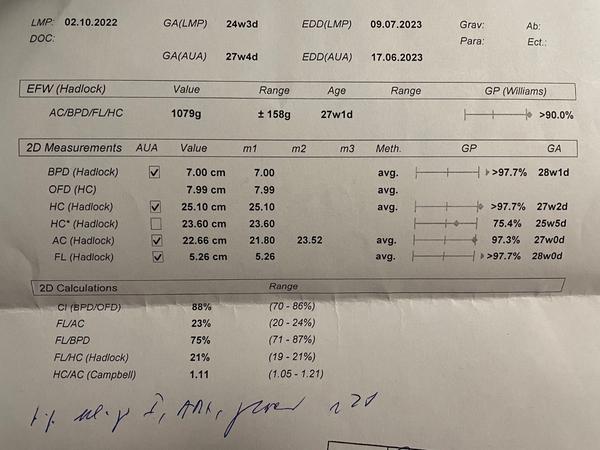 LMP: 02.10.2022 GA(LMP) 24w3d EDD(LMP) 09.07.2023 Grav: Ab:
DOC: Para: Ect.:
GA(AUA) 27w4d EDD(AUA) 17.06.2023
EFW (Hadlock) Value Range Age Range GP (Williams)
AC/BPD/FL/HC 1079g ± 158g 27w1d >90.0%
2D Measurements AUA Value m1 m2 m3 Meth. GP GA
BPD (Hadlock) 7.00 cm 7.00 avg. >97.7% 28w1d
OFD (HC) 7.99 cm 7.99 avg.
HC (Hadlock) 25.10 cm 25.10 avg. >97.7% 27w2d
HC* (Hadlock) 23.60 cm 23.60 75.4% 25w5d
AC (Hadlock) 22.66 cm 21.80 23.52 avg. 97.3% 27w0d
FL (Hadlock) 5.26 cm 5.26 avg. >97.7% 28w0d
2D Calculations Range
CI (BPD/OFD) 88% (70 - 86%)
FL/AC 23% (20 - 24%)
FL/BPD 75% (71 - 87%)
FL/HC (Hadlock) 21% (19 - 21%)
HC/AC (Campbell) 1.11 (1.05 - 1.21)